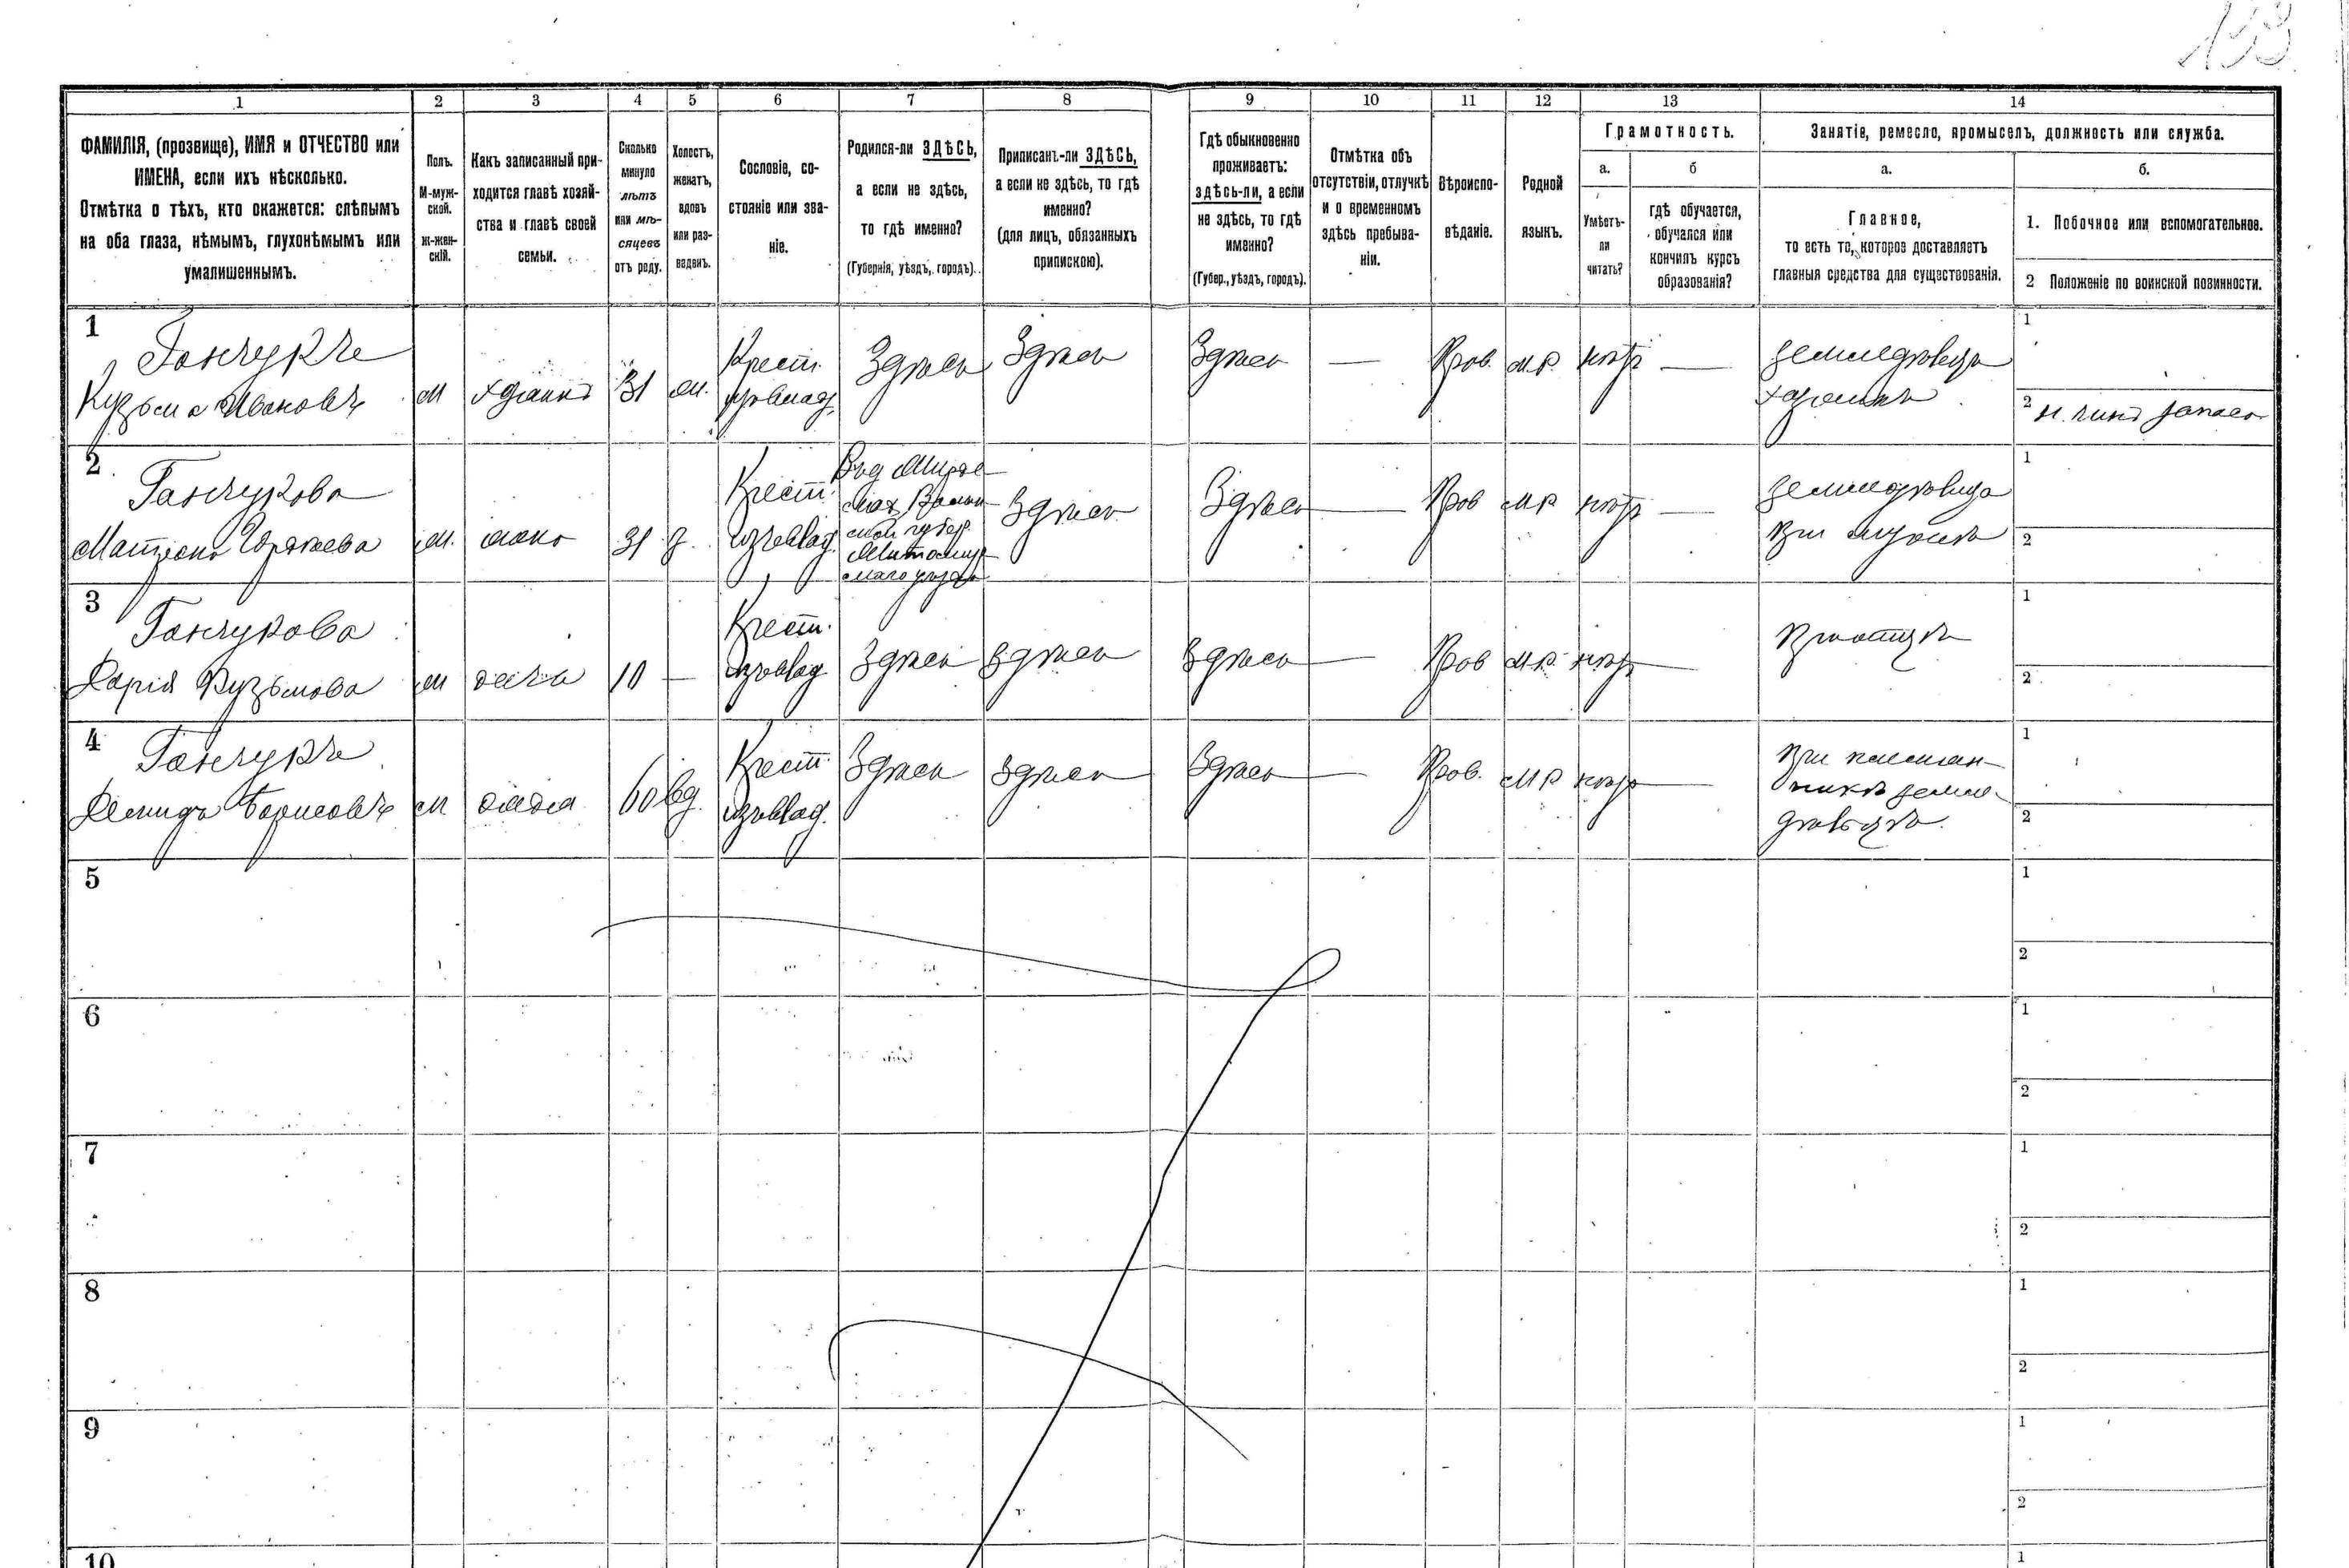 133
1 2 3 4 5 6 7 8 9 10 11 12 13 14
ФАМИЛІЯ, (прозвище), ИМЯ и ОТЧЕСТВО или
ИМЕНА, если ихъ нѣсколько.
Отмѣтка о тѣхъ, кто окажется: слѣпымъ
на оба глаза, нѣмымъ, глухонѣмымъ или
умалишеннымъ.
Полъ.
М-муж-
ской.
ж-жен-
скій.
Какъ записанный при-
ходится главѣ хозяй-
ства и главѣ своей
семьи.
Сколько
минуло
лѣтъ
или мѣ-
сяцевъ
отъ роду.
Холостъ,
женатъ,
вдовъ
или раз-
веденъ.
Сословіе, со-
стояніе или зва-
ніе.
Родился-ли ЗДѢСЬ,
а если не здѣсь,
то гдѣ именно?
(Губернія, уѣздъ, городъ).
Приписанъ-ли ЗДѢСЬ,
а если не здѣсь, то гдѣ
именно?
(для лицъ, обязанныхъ
припискою).
Гдѣ обыкновенно
проживаетъ:
здѣсь-ли, а если
не здѣсь, то гдѣ
именно?
(Губер., уѣздъ, городъ).
Отмѣтка объ
отсутствіи, отлучкѣ
и о временномъ
здѣсь пребыва-
ніи.
Вѣроиспо-
вѣданіе.
Родной
языкъ.
Грамотность.
а.
Умѣетъ-
ли
читать?
б
гдѣ обучается,
обучался или
кончилъ курсъ
образованія?
Занятіе, ремесло, промыселъ, должность или служба.
а.
Главное,
то есть то, которое доставляетъ
главныя средства для существованія.
б.
1. Побочное или вспомогательное.
2 Положеніе по воинской повинности.
1
Ганчукъ
Кузьма Ивановъ
м
31
Крест.
Здѣсь
Здѣсь
Здѣсь
—
Прав.
м.р.
нѣтъ
—
земледѣлецъ
хозяинъ
1
2 н. чинъ запаса
2
Ганчукова
Матрена
31
Крест.
изъ влад.
Здѣсь
Здѣсь
—
Прав
м р
нѣтъ
—
земледѣлица
при мужѣ
1
2
3
Ганчукова
Дарія Кузьмова
дочь
10
—
Крест.
изъ влад
Здѣсь
Здѣсь
Здѣсь
—
Прав
м.р.
нѣтъ
—
При отцѣ
1
2
4
Ганчукъ
Демидъ Борисовъ
м
дядя
60
вд.
Крест
изъ влад.
Здѣсь
Здѣсь
Здѣсь
—
Прав.
м р
нѣтъ
—
При племян-
никѣ земле-
дѣлецъ.
1
2
5
1
2
6
1
2
7
1
2
8
1
2
9
1
2
10
1